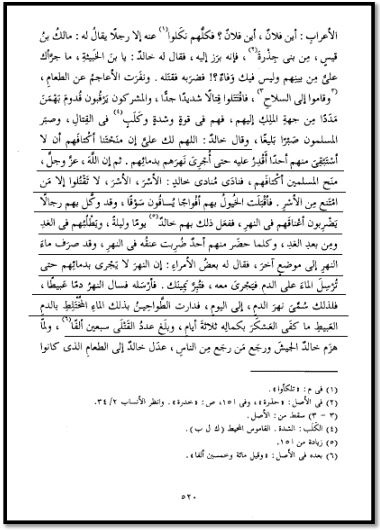 الأعراب : أين فلان ، أين فلان ؟ فكلُّهم نكَلوا(١) عنه إلا رجلًا يقالُ له : مالكُ بنُ
قيسٍ ، مِن بنى جِذْرةَ(٢) ، فإنه برَز إليه ، فقال له خالدٌ : يا بنَ الخَبيثةِ ، ما جرَّأك
علىَّ مِن بينِهم وليس فيك وَفاءٌ ؟! فضرَبه فقتَله . ونفَرَت الأعاجمُ عن الطعامِ ،
(٣وقاموا إلى السلاحِ٣) ، فاقْتَتَلوا قتالًا شديدًا جدًّا ، والمشركون يَرْقُبون قُدومَ بَهْمَنَ
مَدَدًا مِن جهةِ الملِكِ إليهم ، فهم فى قوةٍ وشدةٍ وكَلَبٍ(٤) فى القتالِ ، وصبَر
المسلمون صَبْرًا بَليغًا ، وقال خالدٌ : اللهم لك علىَّ إن منَحْتَنا أكتافَهم أن لا
أَسْتَبْقِىَ منهم أحدًا أَقْدِرُ عليه حتى أُجْرِىَ نَهرَهم بدمائِهم . ثم إن اللَّهَ ، عزَّ وجلَّ ،
منَح المسلمين أكتافَهم ، فنادَى مُنادى خالدٍ : الأَسْرَ ، الأَسْرَ ، لا تَقْتُلوا إلا مَن
امْتَنع مِن الأَسْرِ . فأَقْبَلَت الخيولُ بهم أفواجًا يُساقون سَوْقًا ، وقد وكَّل بهم رجالًا
يَضْرِبون أعناقَهم فى النهرِ ، ففعَل ذلك بهم خالدٌ(٥) يومًا وليلةً ، ويَطْلُبُهم فى الغدِ
ومِن بعدِ الغدِ ، وكلما حضَر منهم أحدٌ ضُرِبت عنقُه فى النهرِ ، وقد صرَف ماءَ
النهرِ إلى موضعٍ آخرَ ، فقال له بعضُ الأُمراءِ : إن النهرَ لا يَجْرِى بدمائِهم حتى
تُرْسِلَ الماءَ على الدمِ فيَجْرِىَ معه ، فتَبَرَّ يمينُك . فأَرْسَله فسال النهرُ دمًا عَبيطًا ،
فلذلك سُمِّىَ نهرَ الدمِ ، إلى اليومِ ، فدارت الطَّواحينُ بذلك الماءِ المُخْتَلِطِ بالدمِ
العَبيطِ ما كفَى العَسْكرَ بكمالِه ثلاثةَ أيامٍ ، وبلَغ عددُ القَتْلَى سبعين ألفًا(٦) ، ولمَّا
هزَم خالدٌ الجيشَ ورجَع مَن رجَع مِن الناسِ ، عدَل خالدٌ إلى الطعامِ الذى كانوا
(١) فى م : « تلكأوا » .
(٢) فى الأصل : « حذرة » ، وفى ا ١٥، ص : « خدرة » . وانظر الأنساب ٣٤/٢ .
(٣ - ٣) سقط من : الأصل .
(٤) الكَلَب : الشدة . القاموس المحيط ( ك ل ب ) .
(٥) زيادة من ا ١٥ .
(٦) بعده فى الأصل : « وقيل مائة وخمسين ألفا » .
٥٢٠